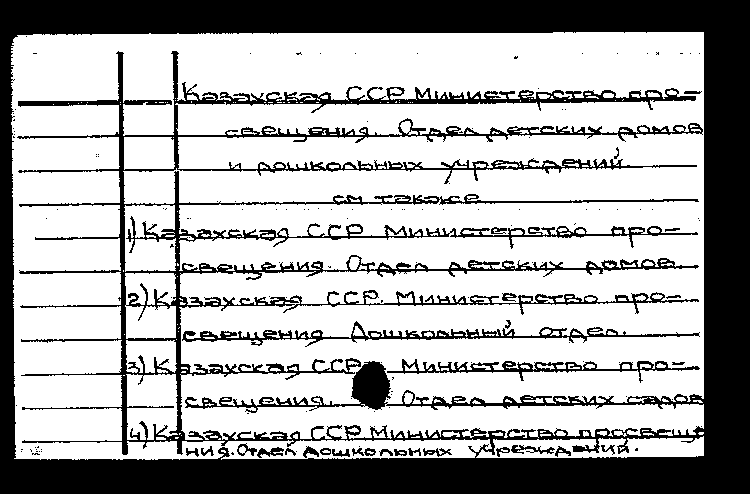 Казахская ССР Министерство про-
свещения. Отдел детских домов
и дошкольных учреждений.
см также
1) Казахская ССР Министерство про-
свещения. Отдел детских домов.
2) Казахская ССР. Министерство про-
свещения Дошкольный отдел.
3) Казахская ССР Министерство про-
свещения. Отдел детских садов
4) Казахская ССР Министерство просвеще
ния. Отдел дошкольных учреждений.